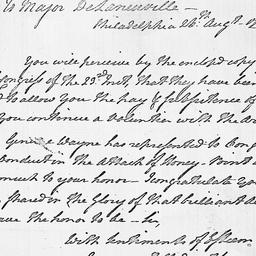 To Major De Laneuville —
Philadelphia 26th Augt. 
You will perceive by the enclosed copy
Congress of the 23d Inst. That they have been
to allow You the pay & subsistence of
You continue a Volunteer with the
General Wayne has represented to Cong
Conduct in the Attack of Stoney-Point
much to your honor — I congratulate you
shared in the Glory of that brilliant
have the honor to be — &c,
With Sentiments of Esteem